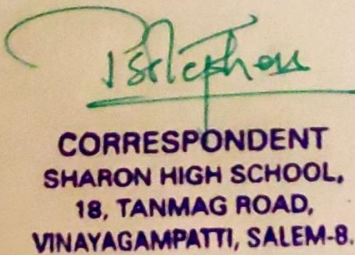 CORRESPONDENT
SHARON HIGH SCHOOL,
18, TANMAG ROAD,
VINAYAGAMPATTI, SALEM-8.